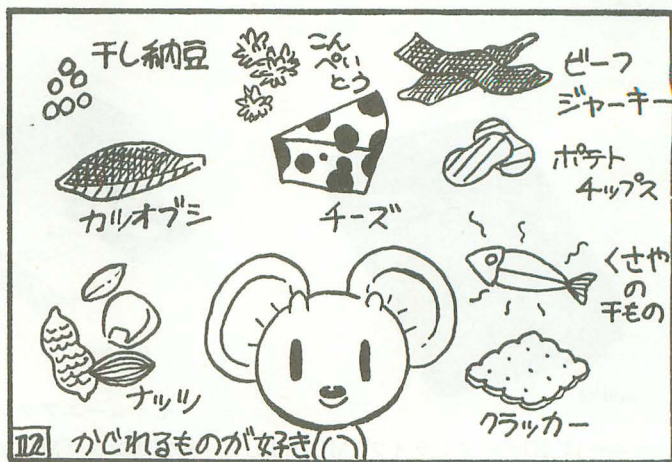 干し納豆
こん
ぺい
とう
ビーフ
ジャーキー
カツオブシ
チーズ
ポテト
チップス
くさや
の
干もの
ナッツ
クラッカー
112 かじれるものが好き